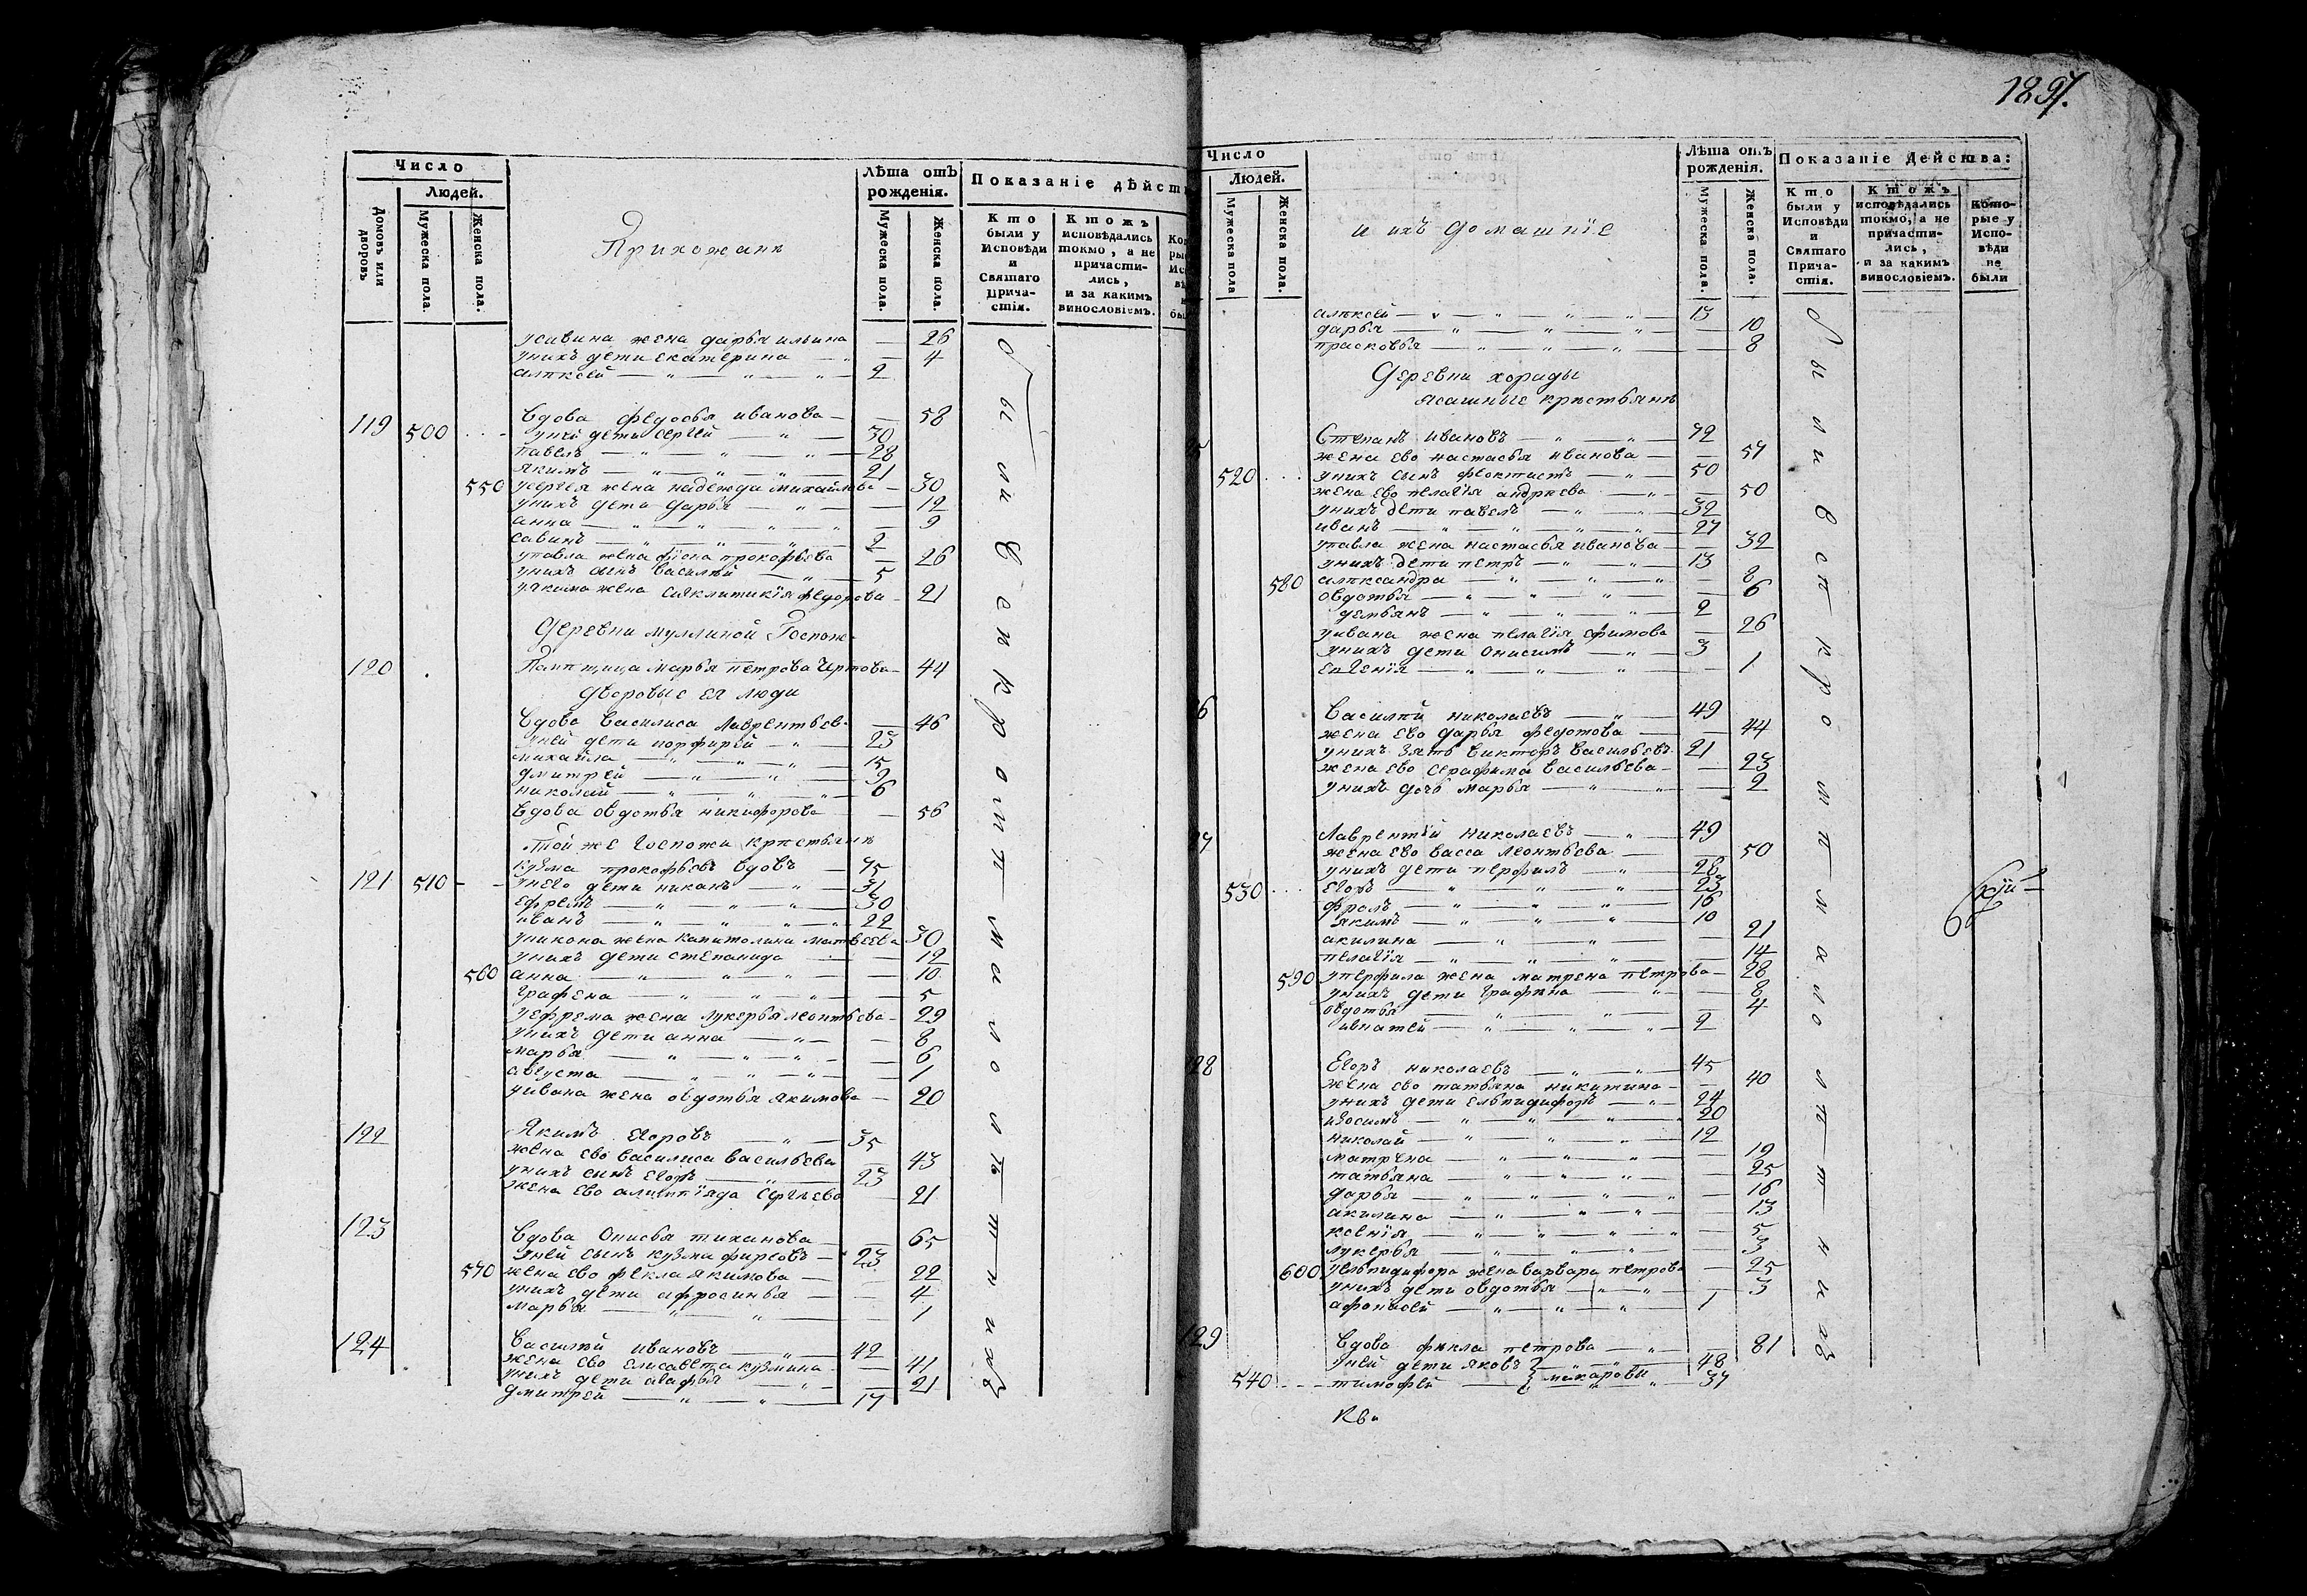 1897.
Число
Людей.
Домовъ или дворовъ
Мужеска пола.
Женска пола.
Прихожанѣ
Лѣта отъ рожденія.
Мужеска пола.
Женска пола.
Показаніе дѣйст
Кто были у Исповѣди и Святаго Прича-стія.
Ктожъ исповѣдались токмо, а не причасти-лись, и за какимъ винословіемъ.
усавина жена дарья ильина — 26
унихъ дети екатерина — 4
алѣксей — 2
119 500 Вдова федосья иванова — 58
уней дети сергей — 30
павелъ — 28
якимъ — 21
550 усергея жена надежда михайлова — 30
унихъ дети дарья — 12
анна — 9
савинъ — 2
упавла жена фіона прокофьева — 26
унихъ сынъ василѣй — 5
уякима жена сиклитикія федорова — 21
Деревни муллиной Госпожа
120 Помѣщица марья петрова Чертова — 44
дворовые ея люди
Вдова василиса лаврентьев — 46
уней дети порфирей — 23
михайла — 15
дмитрей — 9
николай — 6
вдова овдотья никифорова — 56
Той же Госпожи крѣстьянѣ
121 510 кузма прокофьевъ вдовъ — 75
унего дети никанъ — 31
ефремъ — 30
иванъ — 22
уникона жена капитолина матвеева 30
унихъ дети степанида — 12
560 анна — 10
Графена — 5
уефрема жена лукерья леонтьева — 29
унихъ дети анна — 8
марья — 6
августа — 1
уивана жена овдотья якимова — 20
122 Якимъ Егоровъ — 35
жена ево василиса васильева — 43
унихъ сынъ Егоръ — 23
жена ево алимпіяда Сергѣева — 21
123 Вдова Онисья тиханова — 65
уней сынъ кузма фирсовъ — 23
570 жена ево фекла якимова — 22
унихъ дети афросинья — 4
марья — 1
124 Василѣй ивановъ — 42
жена ево елисавета кузмина — 41
унихъ дети агафья — 21
дмитрей — 17
были все кромѣ малолѣтнихъ
Число
Людей.
Мужеска пола
Женска пола.
и ихъ домашніе
Лѣта отъ рожденія.
Мужеска пола.
Женска пола.
Показаніе Дейсtва:
Кто были у Исповѣди и Святаго Прича-стія.
Ктожъ исповѣдались токмо, а не причасти-лись, и за какимъ винословіемъ.
Кото-рые у Испо-вѣди не были
алѣксей — 13
дарья — 10
прасковья — 8
Деревни хорады
ясашные крѣстьянѣ
5 Степанъ ивановъ — 72
жена ево настасья иванова — 57
520 унихъ сынъ феоктистъ — 50
жена ево пелагія андрѣева — 50
унихъ дети павелъ — 32
иванъ — 27
упавла жена настасья иванова — 32
унихъ дети петръ — 13
580 алѣксандра — 8
овдотья — 6
демьянъ — 2
уивана жена пелагія ефимова — 26
унихъ дети Онисимъ — 3
евгенія — 1
26 Василѣй николаевъ — 49
жена ево дарья федотова — 44
унихъ зять викторъ васильевъ 21
жена ево серафима васильева — 23
унихъ дочь марья — 2
27 Лаврентѣй николаевъ — 49
жена ево васса леонтьева — 50
унихъ дети перфилъ — 28
530 Егоръ — 23
фролъ — 16
якимъ — 10
акилина — 21
пелагія — 14
590 уперфила жена матрена петрова — 28
унихъ дети графена — 8
овдотья — 4
игнатей — 2
128 Егоръ николаевъ — 45
жена ево татьяна никитина — 40
унихъ дети елпидифоръ — 24
изосимъ — 20
николай — 12
матрена — 19
татьяна — 25
дарья — 16
акилина — 13
ксенія — 5
лукерья — 3
600 уелпидифора жена варвара петрова — 25
унихъ дети овдотья — 3
афонасей — 1
129 Вдова фѣкла петрова — 81
уней дети яковъ } макаровы 48
540 тимофей — 37
были все кромѣ малолѣтнихъ